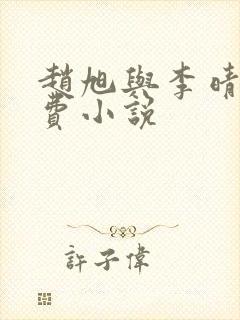 趙旭與李晴
費小説
許子偉